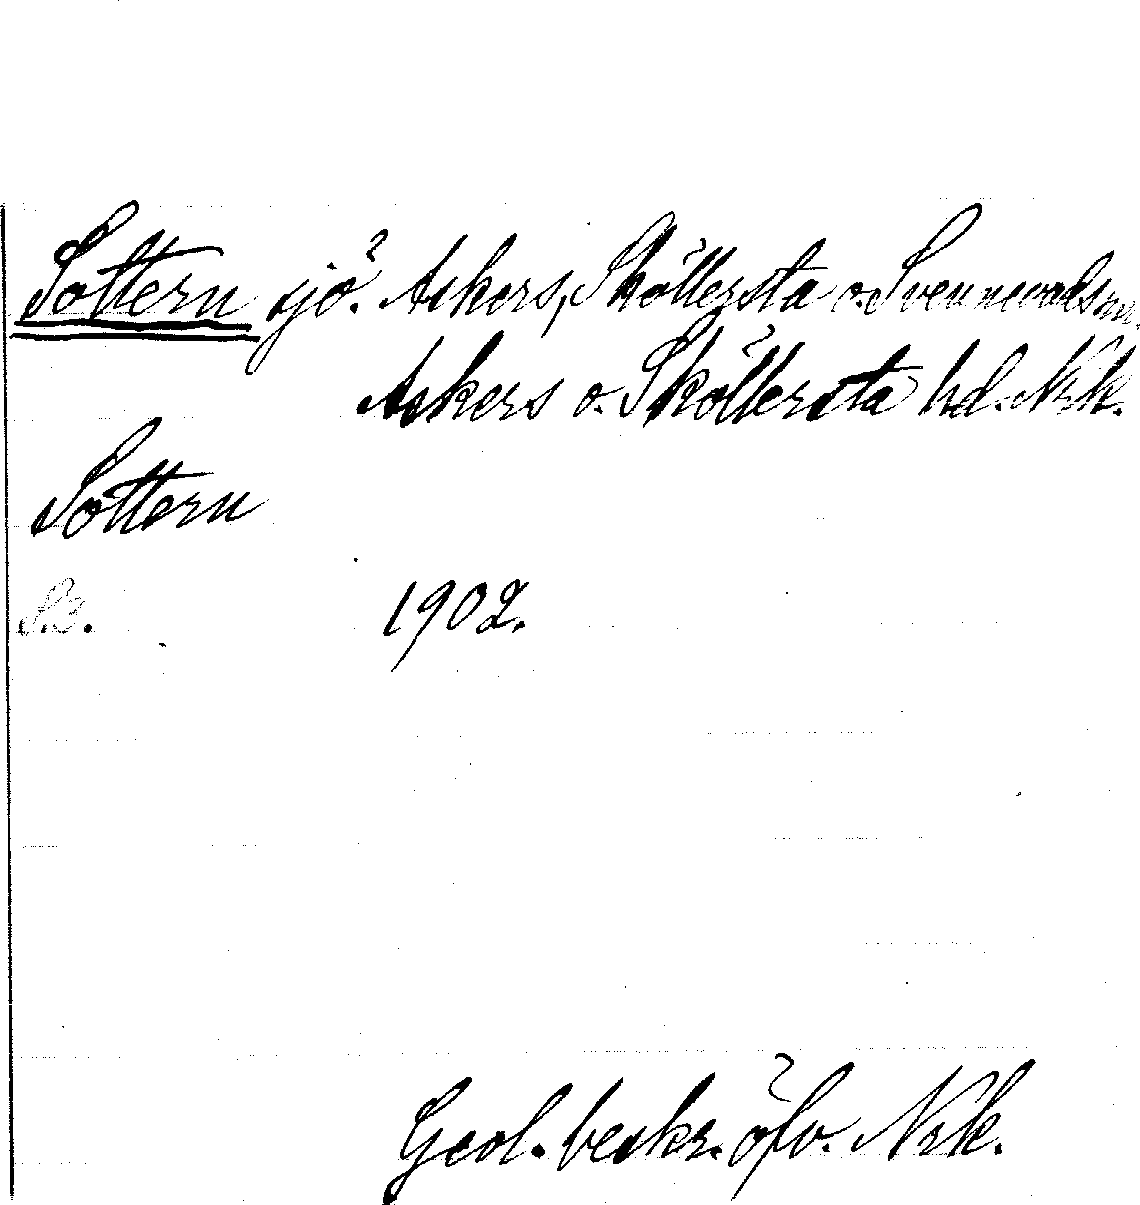 Sottern sjö. Askers, Sköllersta o. Svennevads snr.
Askers o. Sköllersta hd. Nrk.
Sottern
S. 3. 1902.
Geol. beskr. öfv. Nrk.